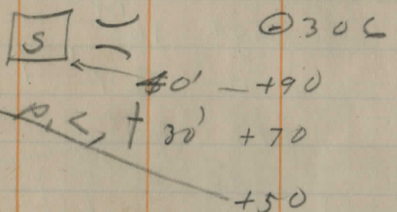 S 306
0' - +90
P, C, + 30' +70
+50